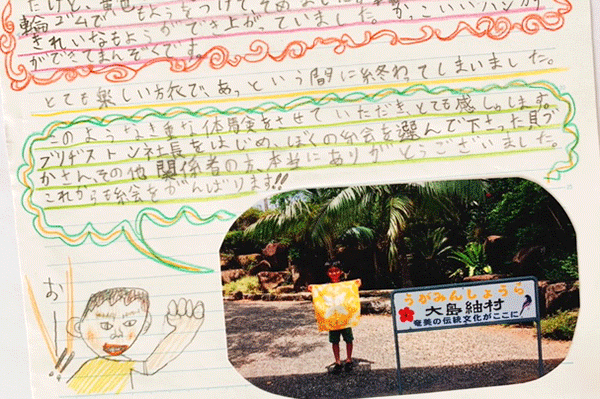 輪ゴムで もようをつけて、そめ
きれいなもようができ上がっていました。かっこいいハンカチ
ができてまんぞくです。
とても楽しい旅で、あっという間に終わってしまいました。
このようなき重な体験をさせていただき、とても感しゃします。
ブリヂストン社長をはじめ、ぼくの絵を選んで下さった
かさん、その他関係者の方、本当にありがとうございました。
これからも絵をがんばります!!
おー!!
うがみんしょうら
大島紬村
奄美の伝統文化がここに